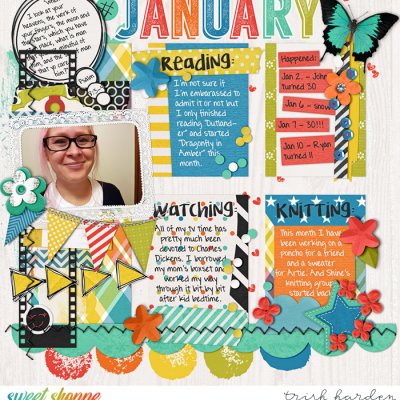 When
I look at your
heavens, the work of
your fingers, the moon and
the stars, which you have
place, what is man
mindful of
man
that yo care
him?
JANUARY
Reading:
I'm not sure if
I'm embarassed to
admit it or not but
I only finished
reading "Outland-
er" and started
"Dragonfly in
Amber" this
month.
Happened:
Jan 2. - John
turned 30
Jan 6 - snow
Jan 7 - 30!!!
Jan 10 - Ryan
turned 11
Watching:
All of my tv time has
pretty much been
devoted to Charles
Dickens. I borrowed
my mom's boxset and
worked my way
through it bit by bit
after kid bedtime.
Knitting:
This month I have
been working on a
poncho for a friend
and a sweater
for Artie. And Shine's
knitting group
started back
sweet shoppe
trish harden